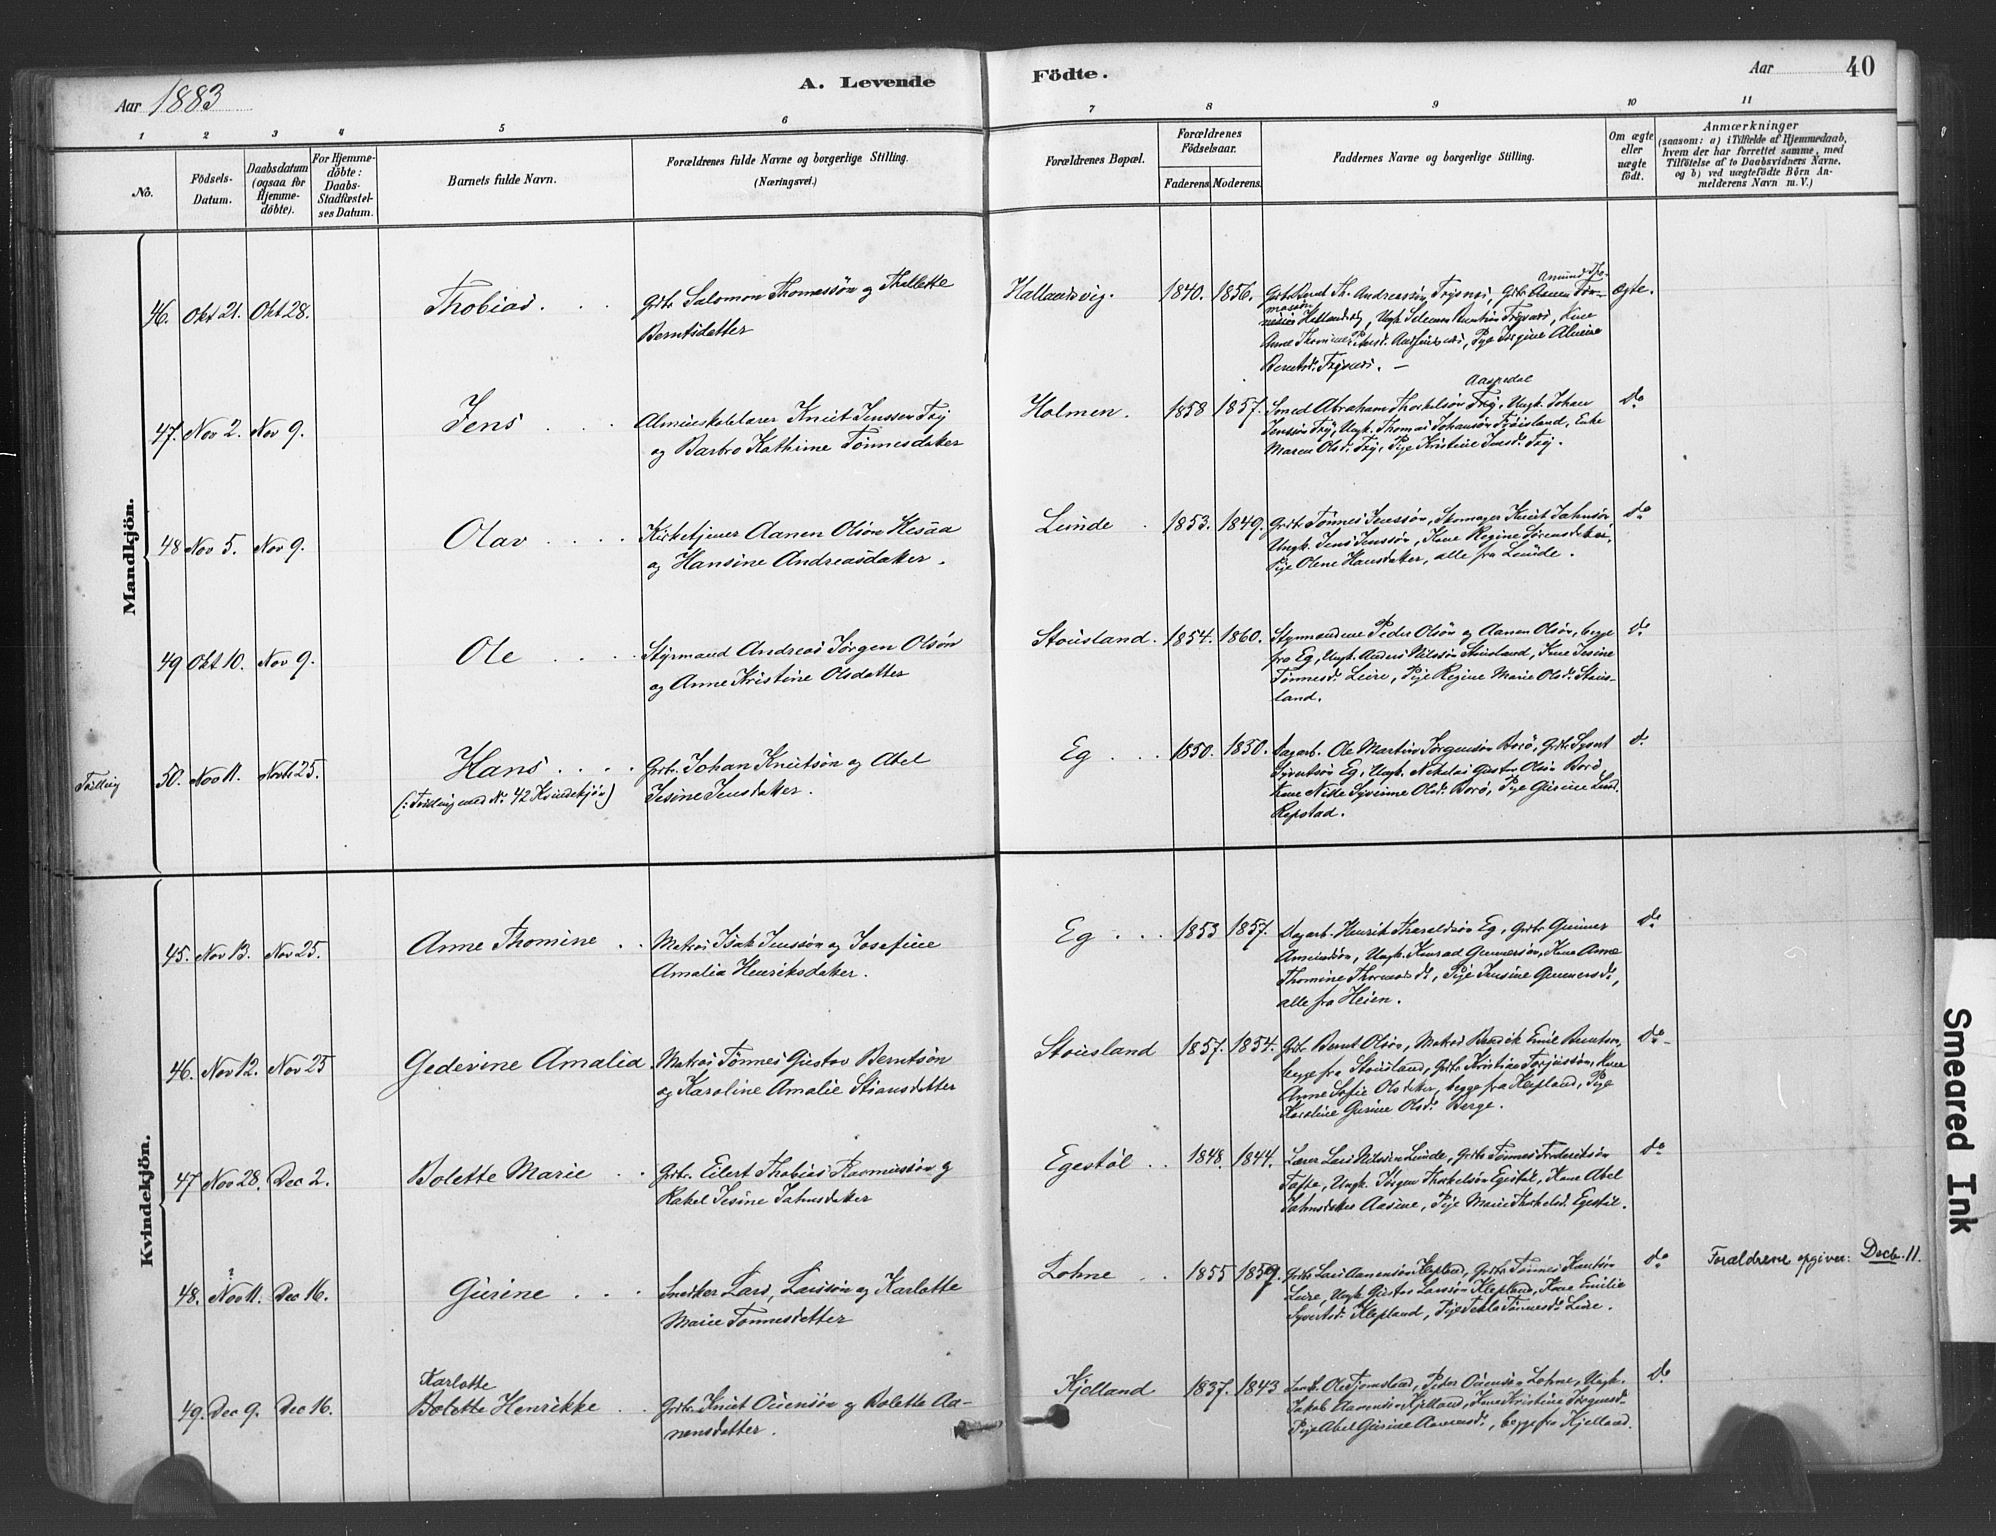 Aar 1883
A. Levende
Födte.
Aar
40
1 2 3 4 5 6 7 8 9 10 11
No.
Födsels-
Datum.
Daabsdatum
(ogsaa for
Hjemme-
döbte).
For Hjemme-
döbte:
Daabs-
Stadfæstel-
ses Datum.
Barnets fulde Navn.
Forældrenes fulde Navne og borgerlige Stilling.
(Næringsvei.)
Forældrenes Bopæl.
Forældrenes
Födselsaar.
Faderens. Moderens.
Faddernes Navne og borgerlige Stilling.
Om ægte
eller
uægte
födt.
Anmærkninger
(saasom: a) i Tilfælde af Hjemmedaab,
hvem der har forrettet samme, med
Tilföielse af to Daabsvidners Navne,
og b) ved uægtefödte Börn An-
melderens Navn m. V.)
Mandkjön.
46. Okt 21. Okt 28.
Thobias
Grbr. Salomon Thomassön og Thallette
Berntsdatter
Hallandsvig.
1840. 1856.
ægte.
47. Nov 2. Nov 9.
Jens
Almueskolelærer Knut Jenssen Try
og Barbro Kathrine Tönnesdatter
Holmen.
1858 1857.
Aagedal
Smed Abraham Thorkelsön Try, Ungk. Johan
Jenssön Try, Ungk. Thomas Johansön Fröisland, Enke
Maren Olsd. Try, Pige Kristine Jensd. Try.
do
48 Nov 5. Nov 9.
Olav
Kirketjener Aanen Olsön Hesaa
og Hansine Andreasdatter.
Lunde
1853. 1849.
Grbr. Tönnes Jenssön, Skomager Knut Jahnsön
Ungk. Jens Jenssön, Kone Regine Sörensdatter,
Pige Olene Hansdatter, alle fra Lunde.
do
49 Okt 10. Nov 9.
Ole
Styrmand Andreas Jörgen Olsön
og Anne Kristine Olsdatter
Stousland.
1854. 1860.
Styrmændene Peder Olsön og Aanen Olsön, begge
fra Eg, Ungk. Anders Nilssön Stousland, Kone Jesine
Tönnesd. Leire, Pige Regine Marie Olsd. Stous-
land.
do
Tvilling
50. Nov 11. Novb 25.
Hans
(: Tvilling med No. 42 Kvindekjön)
Grbr. Johan Knutsön og Abel
Jesine Jensdatter.
Eg
1850. 1850.
Dagarb. Ole Martin Jörgensön Borö, Grbr. Syvert
Syvertsön Eg, Ungk. Nikolai Gustav Olsön Borö,
Repstad.
do
Kvindekjön.
45. Nov 13. Nov 25.
Anne Thomine
Matros Isak Jenssön og Josefine
Amalia Henriksdatter.
Eg
1853 1857.
Dagarb. Henrik Tharaldsön Eg, Grbr. Gunner
Amundsön, Ungk. Konrad Gunnersön, Kone Anne
Thomine Thomasd., Pige Jensine Gunnersd.,
alle fra Heien.
do
46. Nov 12. Nov 25
Gedevine Amalia
Matros Tönnes Gustav Berntsön
og Karoline Amalie Stiansdatter
Stousland
1857. 1854.
Grbr. Bernt Olsön, Matros Bendik Emil Berntsen,
begge fra Stousland, Grbr. Kristian Torjussön, Kone
Anne Sofie Olsdatter, begge fra Klepland, Pige
Karoline Gurine Olsd. Berge.
do
47 Nov 28. Dec 2.
Bolette Marie
Grbr. Eilert Thobias Rasmussön og
Rakel Jesine Jahnsdatter
Egestöl
1848. 1844.
Lærer Lars Nilssön Lunde, Grbr. Tönnes Fredriksön
Tofte, Ungk. Jörgen Thorkelsön Egestöl, Kone Abel
Jahnsdatter Aasine, Pige Marie Thorkelsd. Egestöl.
do
?
48. Nov 11. Dec 16.
Gurine
Snedker Lars Larssön og Karlotte
Marie Tönnesdatter
Lohne
1855 1859.
Grbr. Lars Aanensön Klepland, Grbr. Tönnes Knutsön
Leire, Ungk. Gustav Larssön Klepland, Kone Emilie
Syvertsd. Klepland, Pige Tekla Tönnesd. Leire.
do
Forældrene opgiver: Decb. 11.
49. Dec 9. Dec 16.
Karlotte
Bolette Henrikke
Grbr. Knut Ouensön og Bolette Aa-
nensdatter.
Kjelland
1837. 1843
Ole Tjomsland, Peter Ouensön Lohne, Ungk.
Jakob Aanensön Kjelland, Kone Kristine Jörgensd.
Pige Abel Gurine Aanensd., begge fra Kjelland.
do
Smeared Ink